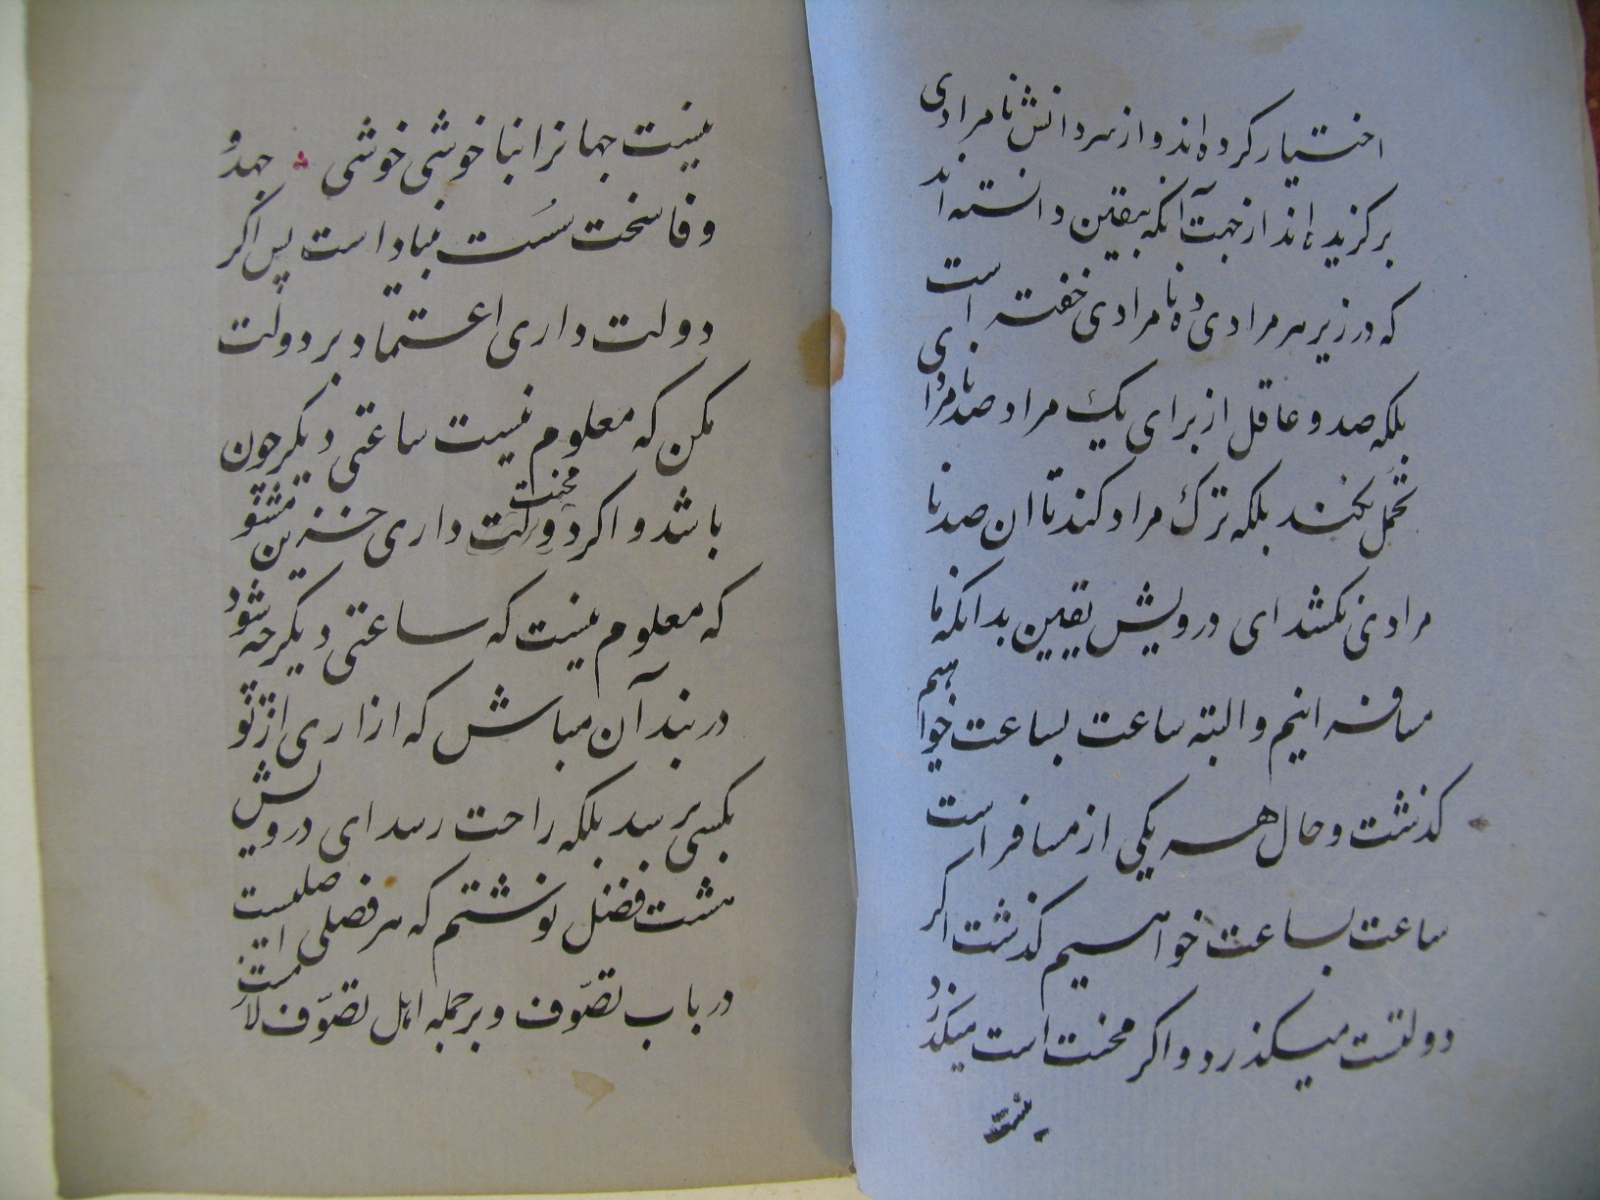 اختیار کرده‌اند و از سر دانش نامرادی
برکزیده‌اند از جهت آنکه بیقین دانسته‌اند
که در زیر هر مرادی ده نامرادی خفته است
بلکه صد و عاقل از برای یک مراد صد نامرادی
تحمل نکند بلکه ترک مراد کند تا ان صد نا
مرادی نکشد ای درویش یقین بدانکه ما
مسافرانیم و البته ساعت بساعت خواهیم
کذشت و حال هر یکی از مسافر است
ساعت بساعت خواهیم کذشت اکر
دولتست میکذرد و اکر محنت است میکذرد
نیست جهانرا بنا خوشی خوشی جهد و
وفا سخت سُست بنیاد است پس اکر
دولت داری اعتماد بر دولت
مکن که معلوم نیست ساعتی دیکر چون
باشد و اکر دولت محنت داری حزین مشو
که معلوم نیست که ساعتی دیکر چه شود
در بند آن مباش که ازاری از تو
بکسی برسد بلکه راحت رسد ای درویش
هشت فصل نوشتم که هر فصلی اصلیست
در باب تصوّف و بر جمله اهل تصوّف لازمست